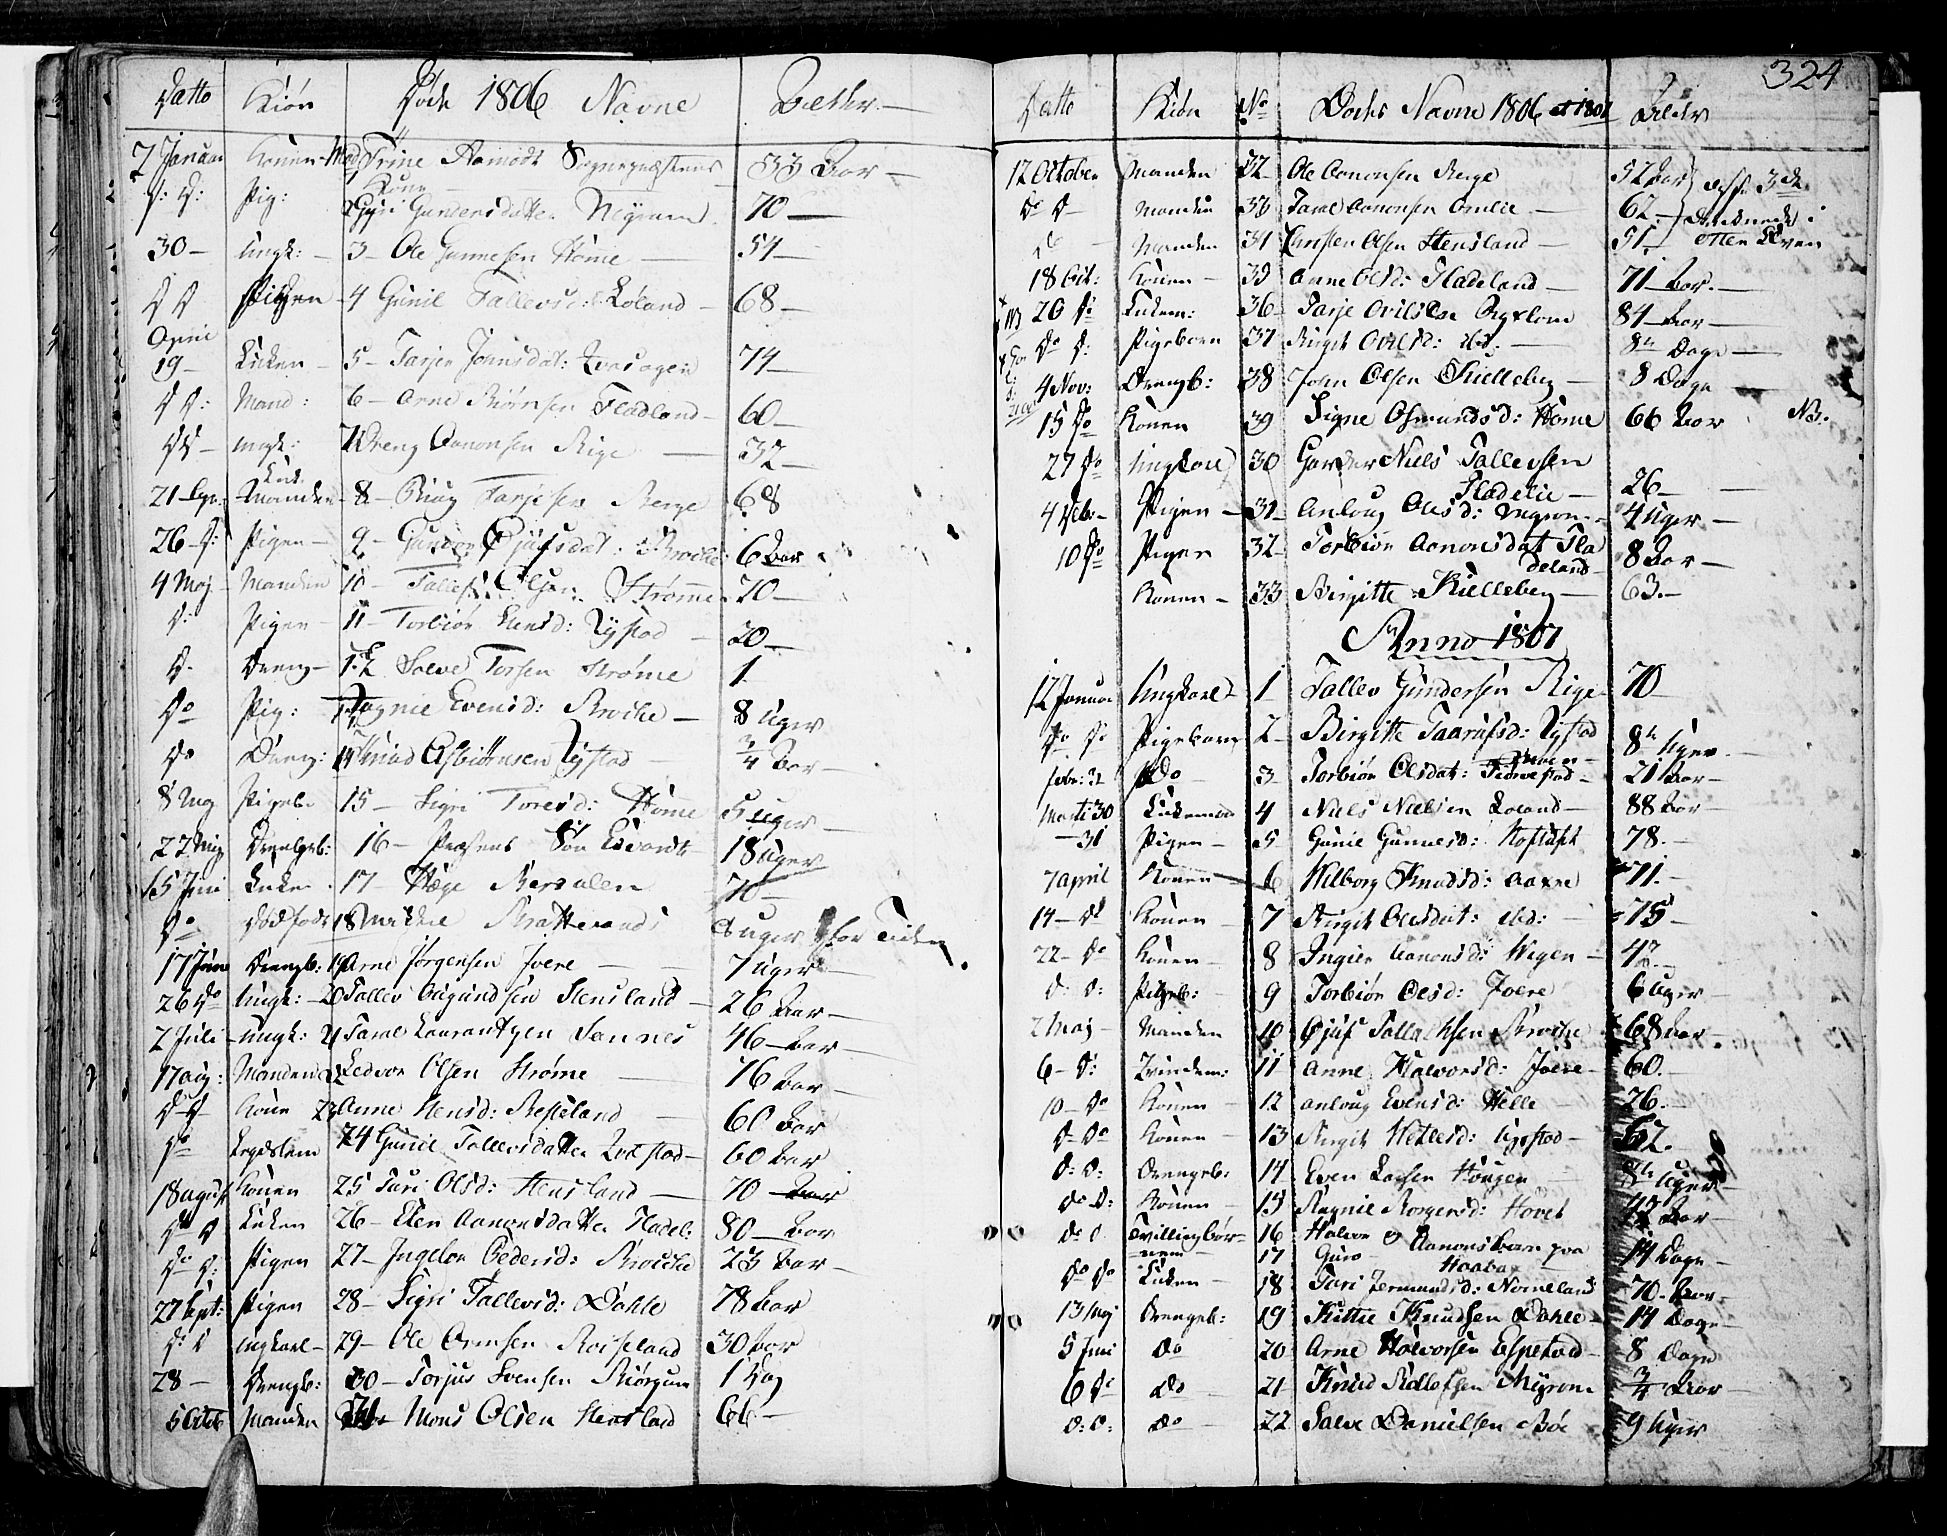 Datto Kiön Döde 1806 Navne Alder
7 Januar Konen Mad Trine Aamodt Sognepræstens 53 Aar
Kone
D: D: Pig: 2 Gyri Gundersdatter Nyram 70
30 Ungk: 3 Ole Gunnesen Höme 54
D D Pigen 4 Gunil Tallevsd: Löland 68
April
19 Enken 5 Tarjer Jonnsdat: 74
D D: Mand: 6 Arne Biörnsen Fladland 60
D D Ungk: 7 Dreng Aanonsen Rige 32
Enk
21 Manden 8 Tarjesen Berge 68
26 D: Pigen 9 Gunder Öjufsdat: Broche 6 Aar
4 Maj Manden 10 Tallef Olsen Strömme 70
D: Pigen 11 Torbiör Stensd: Rystad 20
D. Dreng 12 Salve Torsen Ströme 1
Do Pig: 13 Ragnie Evensd: Broche 8 Uger
Do Dreng: 14 Knud Asbiörnsen Rystad 3/4 Aar
8 Maj Pigeb. 15 Sigri Toresd: Höme 5 Uger
22 Maj Drengeb: 16 Præstens Sön Edvard 18 Uger
15 Juni Enken 17 Hæge 70
Do Dödföd: 18 Brattestad 8 uger för Tiden
17 Juni Drengb: 19 Arne Jörgensen Jvere 7 Uger
26 Do Ungk: 20 Tallev Augundsen Stensland 26 Aar
2 Juli Ungk: 21 Taral Laurantzen Sannes 46 Aar
17 aug: Manden 22 Ledvor Olsen Ströme 76 Aar
D D Kone 23 Anne Stensd: Besteland 60 Aar
Do Lægdslem 24 Gunil Tallevsdatter 60 Aar
18 august Konen 25 Turi Olsd: Stensland 70 Aar
Do D Enken 26 Elen Aanonsdatter Fladel: 80 Aar
Do D: Pigen 27 Ingebor Pedersd: Broche 23 Aar
27 Sept: Pigen 28 Sigri Tallevsd: Dahle 78 Aar
D: D Ungkarl 29 Ole Ormsen Roiseland 30 Aar
28 Drengb: 30 Torjus Svensen Biörgum 1 Dag
5 Octob Manden 31 Mons Olsen Stensland 66
324
Datto Kiön No Dödes Navne 1806 et 1807 Alder
12 October Manden 32 Ole Aanonsen Berge 52 Aar disse 3de
Do D Manden 33 Taral Aanonsen Omlie 62 druknede i
Do Manden 34 Christen Olsen Stensland 51 Otter Elven
18 Oct: Konen 35 Anne Olsd: Fladeland 71 Aar
NB 20 Do Enkem: 36 Tarje 84 Aar
Do D: Pigebarn 37 Birgit ibd: 8te Dage
4 Nov: Drengb: 38 John Olsen Kielleberg 8 Dage
15 Do Konen 39 Signe Osmundsd: Höme 66 Aar NB.
27 Do Ungkarl 30 Garder Niels Tallevsen
Fladelie 26
4 Debr Pigen 31 Anloug Olsd: 4 Uger
10 Do Pigen 32 Torbiör Aanonsdat Fla
deland 8 Aar
Konen 33 Birgitte Kielleberg 63
Anno 1807
12 Januar Ungkarl 1 Tallev Gundersen Rige 70
Do D: Pigebarn 2 Birgitte Taarafsd: Rystad 8te Uger
febr: 32 Do 3 Torbiör Olsdat: 21 Aar
Marti 30 Enkemand 4 Niels Nielsen Loland 88 Aar
31 Pigen 5 Gunie Gunnesd: Hoftuft 78
7 april Konen 6 Wilborg Knudsd: Aaxne 71
14 D: Konen 7 Birgit Olsdat: ibd: 75
22 Do Konen 8 Ingier Aanonsd: Wegen 47
D: D: Pigeb: 9 Torbiör Olsd: Jvere 6 Uger
2 Maj Manden 10 Öjuf Tallachsen Broche 68 Aar
6 D: Qvindem: 11 Anne Halvorsd: Jvere 60
10 Do Konen 12 Anloug Evensd: Helle 26
D Do Konen 13 Birgit Hellesd: Rystad 62
D: D: Drengeb: 14 Even Larsen Hougen 8te Uger
Do D: Konen 15 Ragnie Borgersd: Hovet 42 Aar
Do D Tvillingbör 16 Halvor og Aanons barn paa
nene 17 Guro 14 Dage
Do Do Enken 18 Turi Jermundsd: Nomeland 70 Aar
13 Maj Drengeb: 19 Kittie Knudsen Dahle 14 Dage
5 Juni Do 20 Arne Halvorsen Espetvd 8 Dage
6 D: Do 21 Knud Nidlofsen Myrom 3/4 Aar
D: D: Do 22 Salve Danielsen Böe 9 Uger